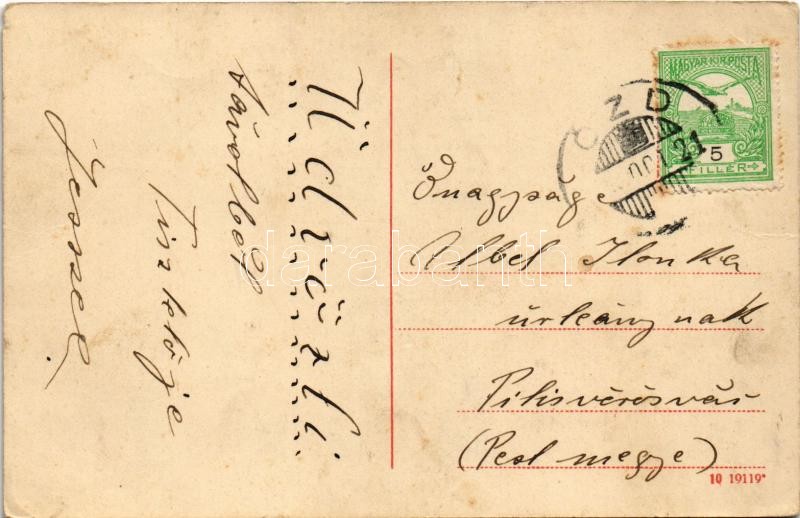 Üdvözli
távolból
Tisztelője
József
MAGYAR KIR. POSTA
5
FILLÉR
OZD
21
Őnagysága
Albel Ilonka
úrleánynak
Pilisvörösvár
(Pest megye)
10 19119*
darabanth